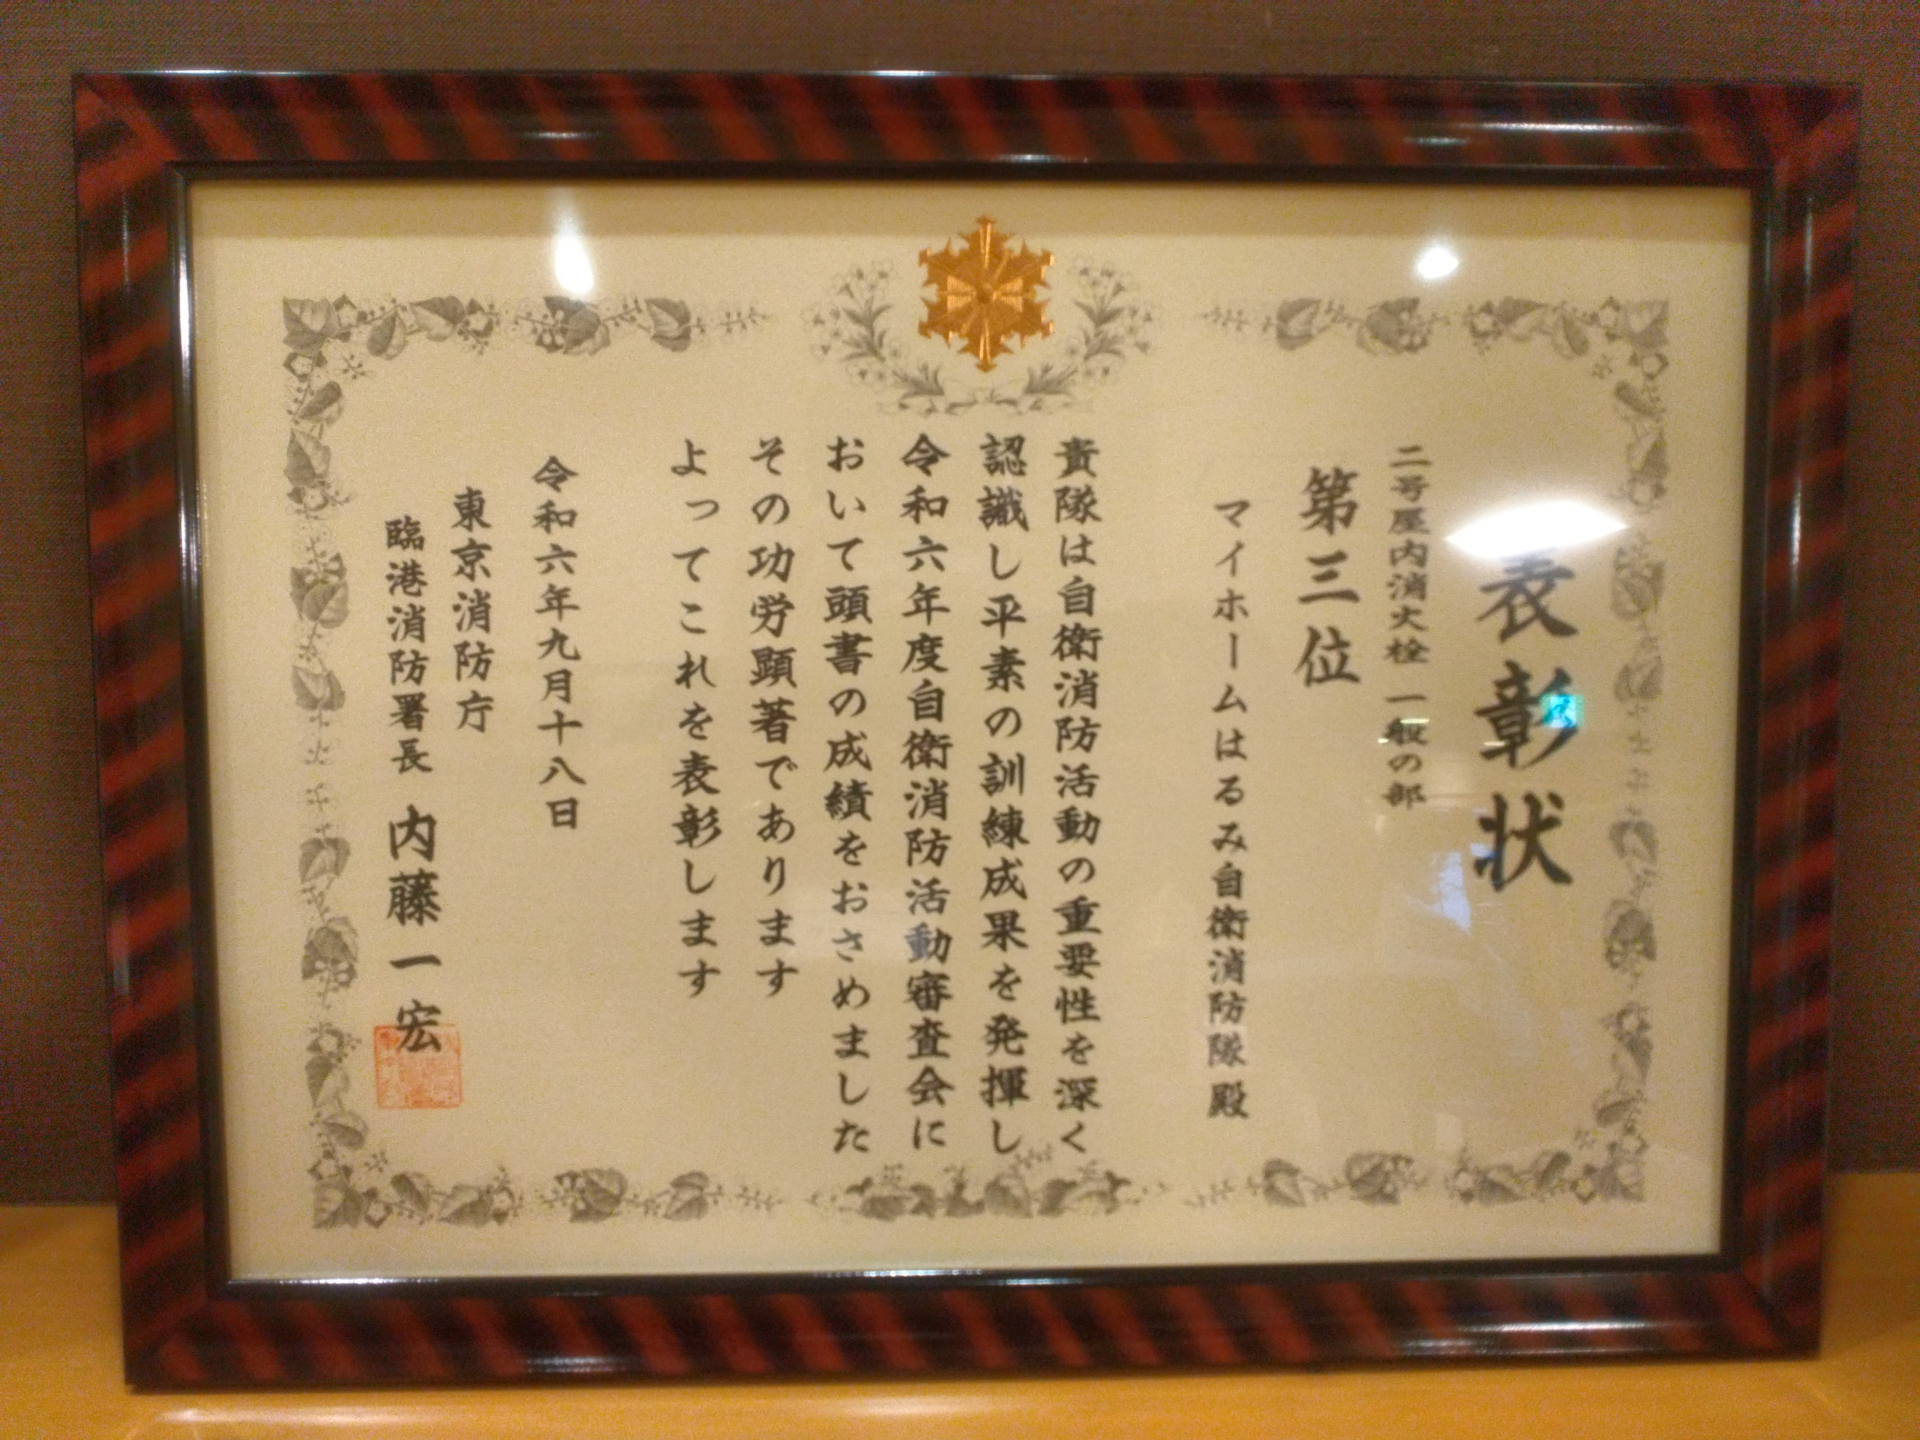 表彰状
二号屋内消火栓 一般の部
第三位
マイホームはるみ自衛消防隊 殿
貴隊は自衛消防活動の重要性を深く
認識し平素の訓練成果を発揮し
令和六年度自衛消防活動審査会に
おいて頭書の成績をおさめました
その功労顕著であります
よってこれを表彰します
令和六年九月十八日
東京消防庁
臨港消防署長 内藤一宏